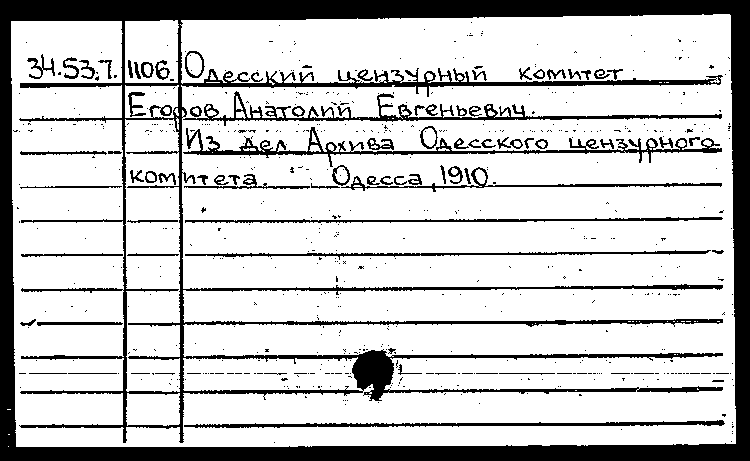 34.53.7. 1106. Одесский цензурный комитет.
Егоров, Анатолий Евгеньевич.
Из дел Архива Одесского цензурного
комитета. Одесса, 1910.